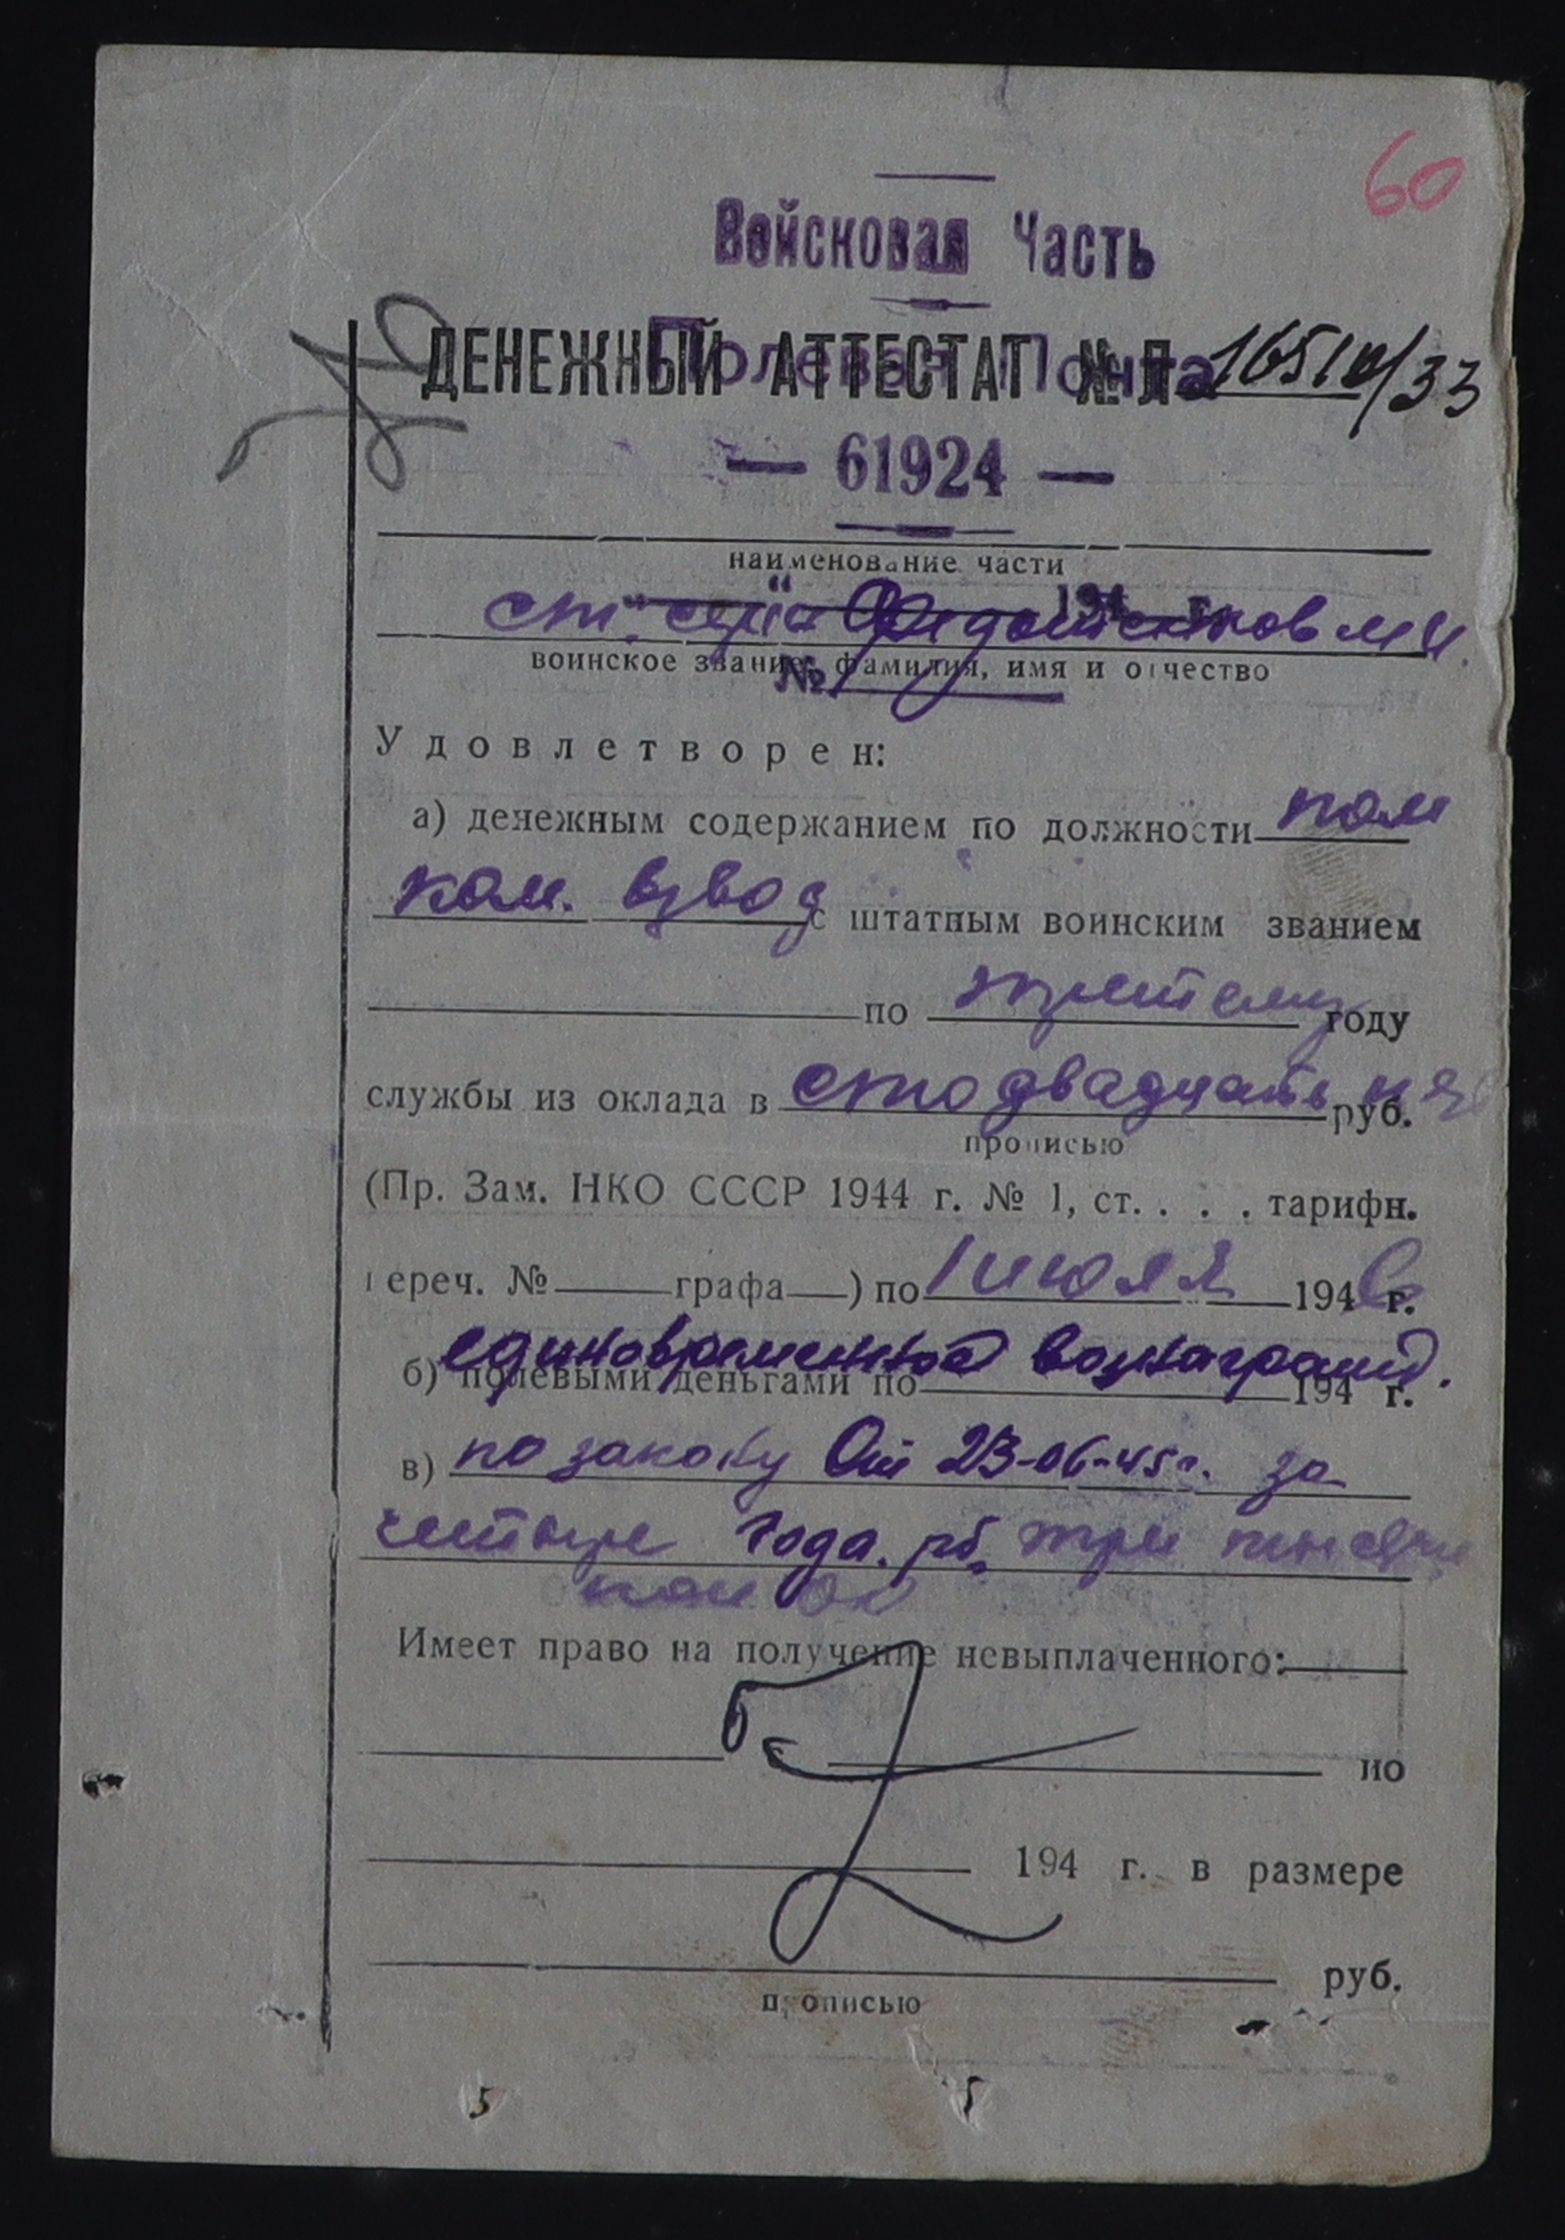 60
Войсковая Часть
Полевая Почта
ДЕНЕЖНЫЙ АТТЕСТАТ № Л 16510/33
— 61924 —
наименование части
" " 194 г.
ст. серж. М И.
воинское звание, фамилия, имя и отчество
№
Удовлетворен:
а) денежным содержанием по должности пом
ком. взвод с штатным воинским званием
по третьему году
службы из оклада в сто двадцать пять руб.
прописью
(Пр. Зам. НКО СССР 1944 г. № 1, ст. . . . тарифн.
переч. № графа ) по 1 июля 1946 г.
единовременной вознагражд.
б) полевыми деньгами по 194 г.
в) по закону От 23-06-45г. за
четыре года. рб. три тысячи
Имеет право на получение невыплаченного:
по
194 г. в размере
руб.
прописью